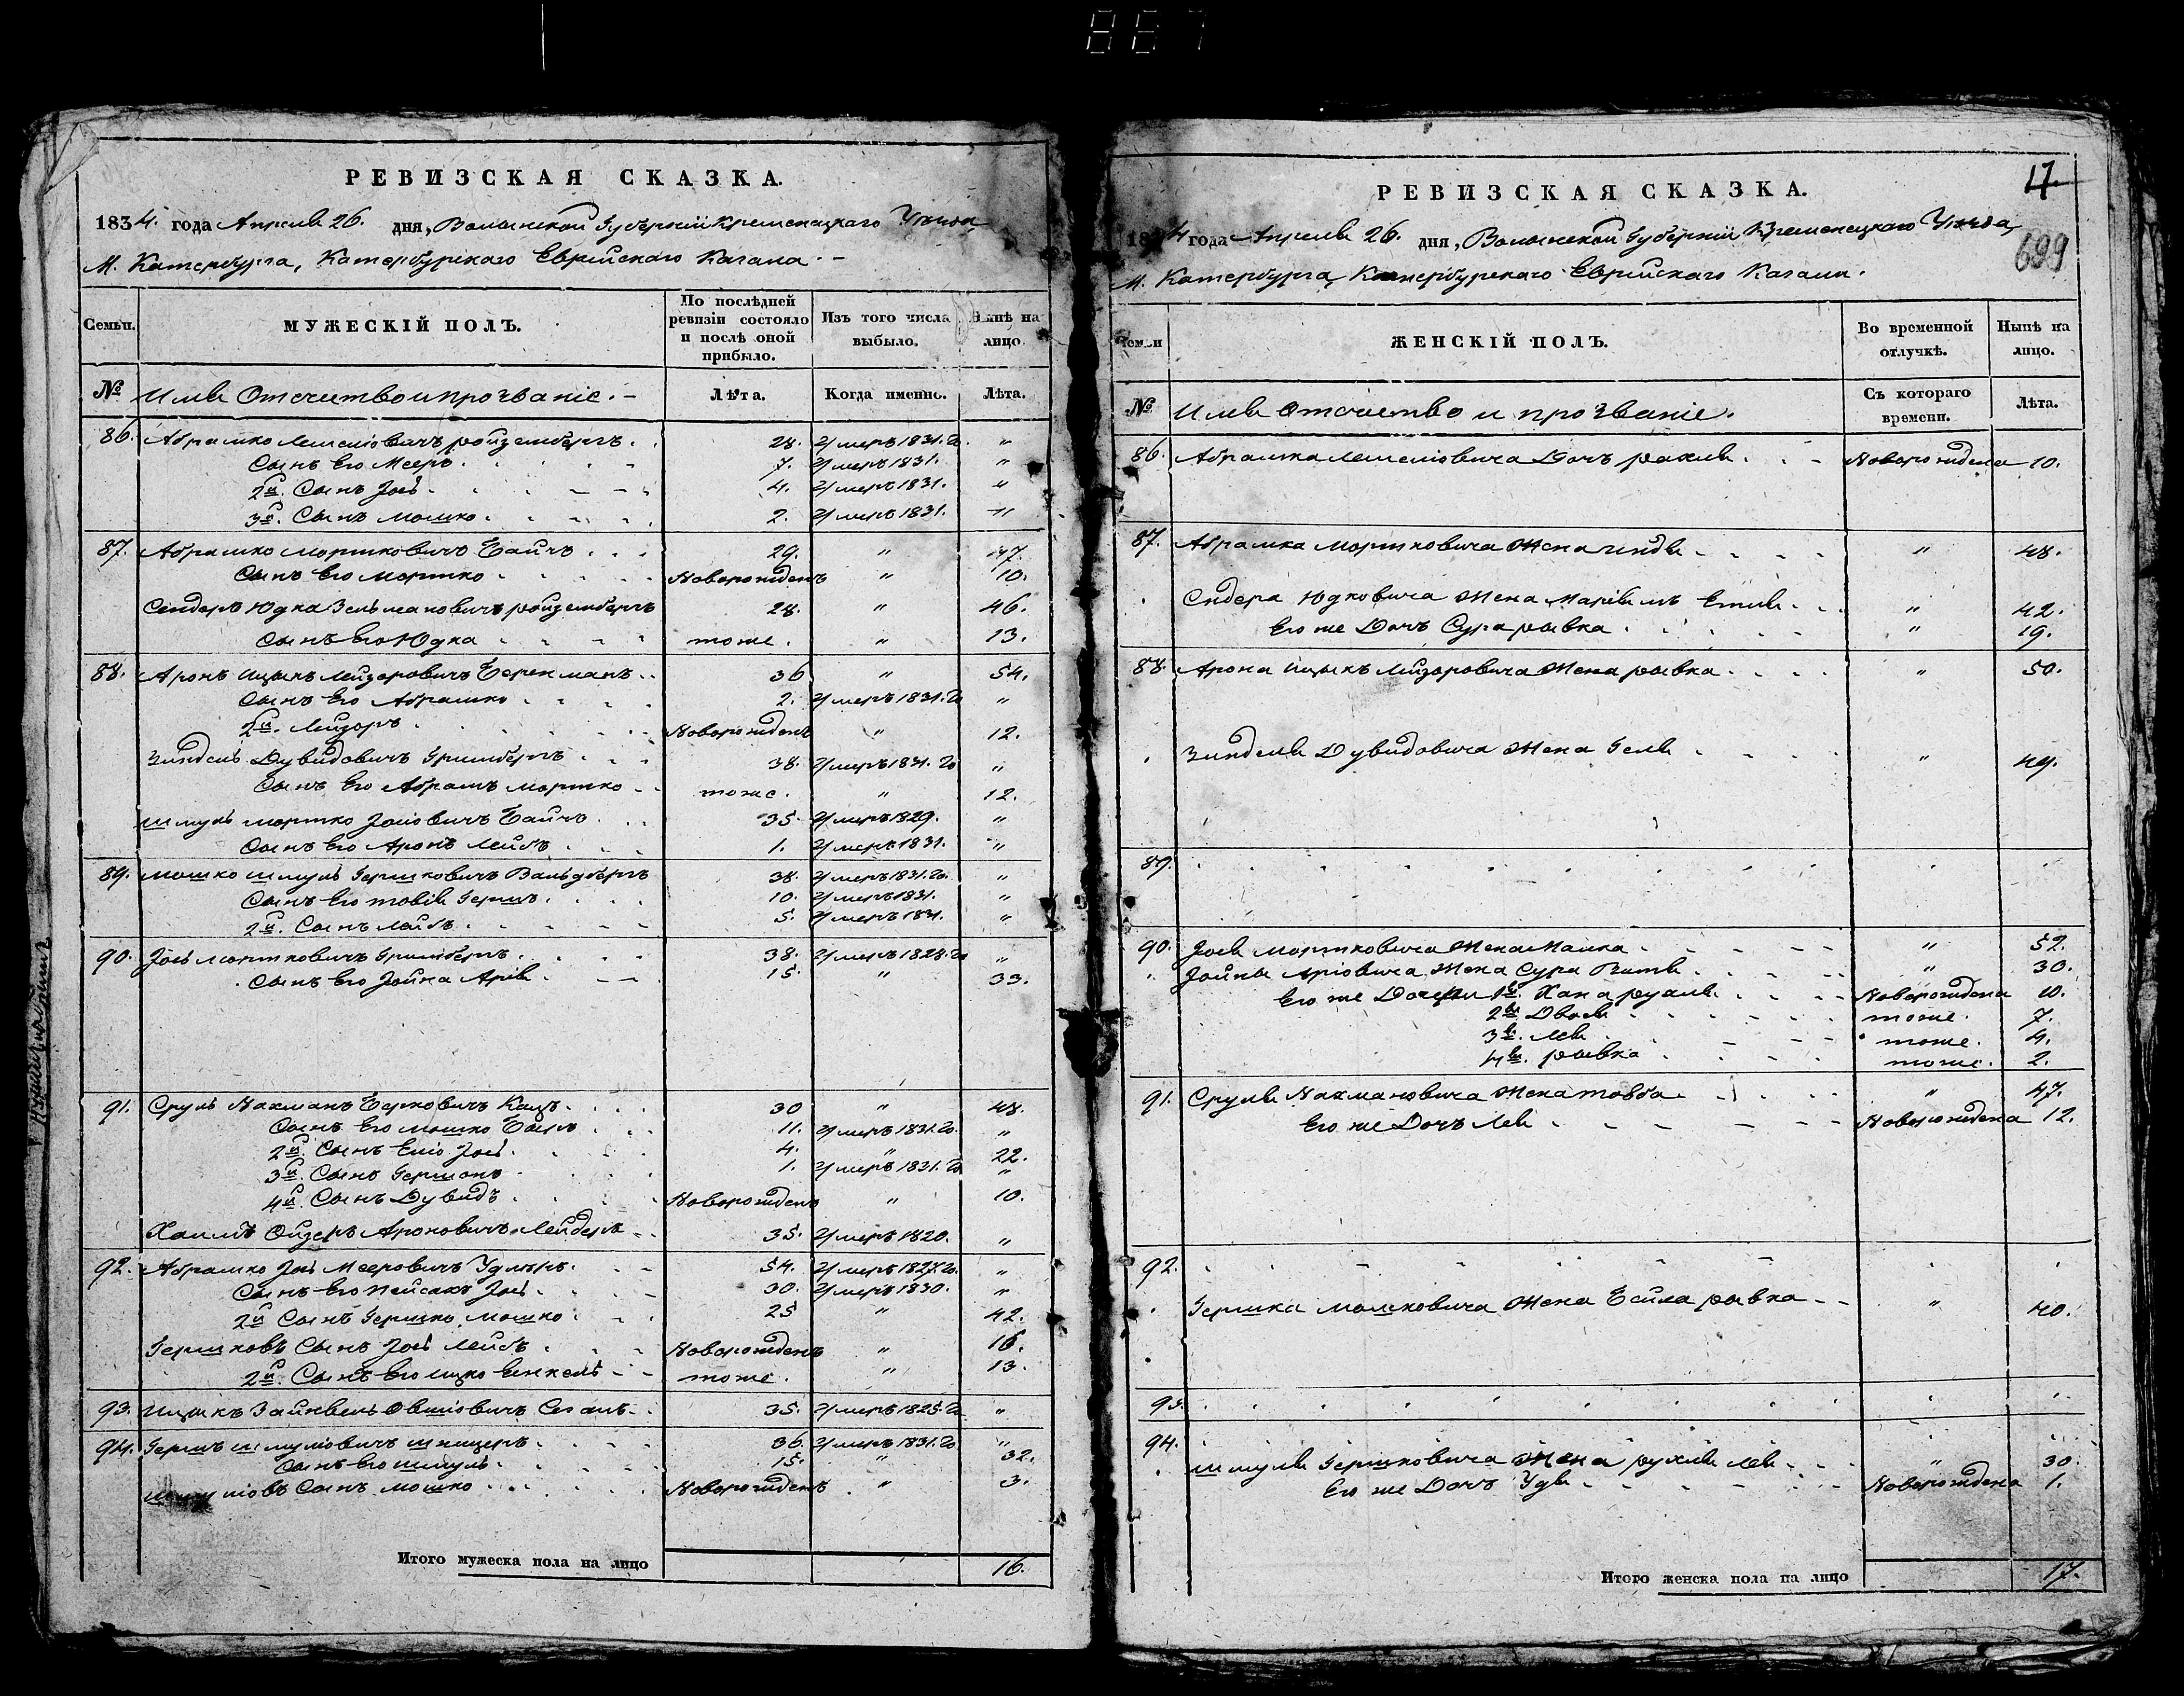 887
РЕВИЗСКАЯ СКАЗКА.
1834. года Апреля 26. дня, Волынской Губернии Кременецкаго Уезда
М. Катербурга, Катербургскаго Еврейскаго Кагала.
Семьи. МУЖЕСКІЙ ПОЛЪ. По послѣдней ревизіи состояло и послѣ оной прибыло. Изъ того числа выбыло. Нынѣ на лицо
№ Имя Отечество и прозваніе. Лѣта. Когда именно. Лѣта.
86. Абрамко Лемелiовичъ ройзенбергъ 28. умеръ 1831. го "
Сынъ Его Мееръ 7. умеръ 1831. "
2й. Сынъ Iосъ 4. умеръ 1831. "
3й. Сынъ Мошко 2. умеръ 1831. "
87. Абрамко Мортковичъ 29. " 47.
Сынъ Его Мортко Новорожденъ " 10.
Сендеръ Юдка Зельмановичъ ройзенбергъ 28. " 46.
Сынъ Его Юдка тоже. " 13.
88. Аронъ Ицыкъ Лейзоровичъ 36 " 54.
Сынъ Его Абрамко 2. умеръ 1831. го "
2й. Лейзоръ Новорожденъ " 12.
Зинделъ Дувидовичъ Гринбергъ 38. умеръ 1831. го "
Сынъ Его Абрамъ Мортко тоже. " 12.
Шмуль Мортко Iосiовичъ 35. умеръ 1829. "
Сынъ Его Аронъ Лейбъ 1. умеръ 1831. "
89. Мошко Шмуль Гершковичъ Вальдбергъ 38. умеръ 1831. го. "
Сынъ Его товiя Гершъ 10. умеръ 1831. "
2й. Сынъ Лейбъ 5. умеръ 1831. "
90. Iось Мортковичъ Гринбергъ 38. умеръ 1828. го "
Сынъ Его Iойна Арiя 15. " 33.
91. Сруль Нахманъ Берковичъ Кацъ 30 " 48.
Сынъ Его Мошко 11. умеръ 1831. го. "
2й. Сынъ Iось 4. " 22.
3й. Сынъ Гершонъ 1. умеръ 1831. го "
4й. Сынъ Дувидъ Новорожденъ " 10.
Хаимъ Ойзеръ Ароновичъ 35. умеръ 1820. "
92. Абрамко Iось Мееровичъ 54. умеръ 1827. го. "
Сынъ Его Пейсахъ Iось 30. умеръ 1830. "
2й Сынъ Гершко Мошко 25 " 42.
Гершковъ Сынъ Iось Лейбъ Новорожденъ " 16.
2й. Сынъ Его Ицко Енкель тоже. " 13.
93. Ицыкъ Зайнвель Овшiовичъ Сегалъ 35. умеръ 1825. го "
94. Гершъ Шмулiовичъ шницеръ 36. умеръ 1831. го "
Сынъ Его Шмуль 15. " 32.
Шмулiовъ Сынъ Мошко Новорожденъ " 3.
Итого мужеска пола на лицо 16.
17.
699
РЕВИЗСКАЯ СКАЗКА.
1834 года Апреля 26. дня, Волынской Губернiи Кременецкаго Уезда
М. Катербурга, Катербургскаго Еврейскаго Кагала.
Семьи ЖЕНСКІЙ ПОЛЪ. Во временной отлучкѣ. Нынѣ на лицо.
№ Имя Отечество и прозваніе. Съ котораго времени. Лѣта.
86. Абрамка Лемелiовича Дочь рахля Новорождена 10.
87. Абрамка Мортковича Жена гендля " 48.
Сендера Юдковича Жена " 42.
Его же Дочь Сура рывка " 19.
88. Арона Ицыкъ Лейзоровича Жена рывка " 50.
Зинделя Дувидовича Жена Геля " 49.
89.
90. Iося Мортковича Жена Малка " 52.
Iойны Арiовича Жена Сура " 30.
Его же Дочери 1я. Хана рухля Новорождена 10.
2я. Двося тоже. 7.
3я. Лея тоже. 4.
4я. рывка тоже. 2.
91. Сруля Нахмановича Жена товба " 47.
Его же Дочь Лея Новорождена 12.
92.
Гершка Мошковича Жена Бейла рывка " 40.
93.
94.
Шмуля Гершковича Жена рухля лея " 30.
Его же Дочь Удя Новорождена 1.
Итого женска пола на лицо 17.